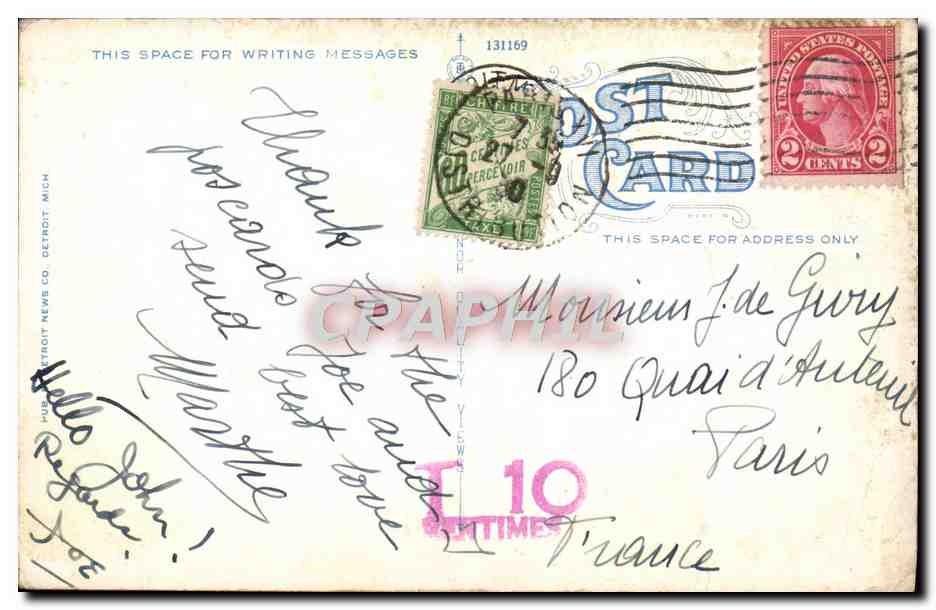 THIS SPACE FOR WRITING MESSAGES
131169
POST
CARD
THIS SPACE FOR ADDRESS ONLY
UNITED STATES POSTAGE
2 CENTS 2
CENTIMES
PERCEVOIR
Thank for the
poscards Joe and I
send best love
Marthe
Hello John!
Regards
Joe
Monsieur J. de Givry
180 Quai d'Auteuil
Paris
France
T 10
CENTIMES
CPAPHIL
DETROIT NEWS CO., DETROIT, MICH